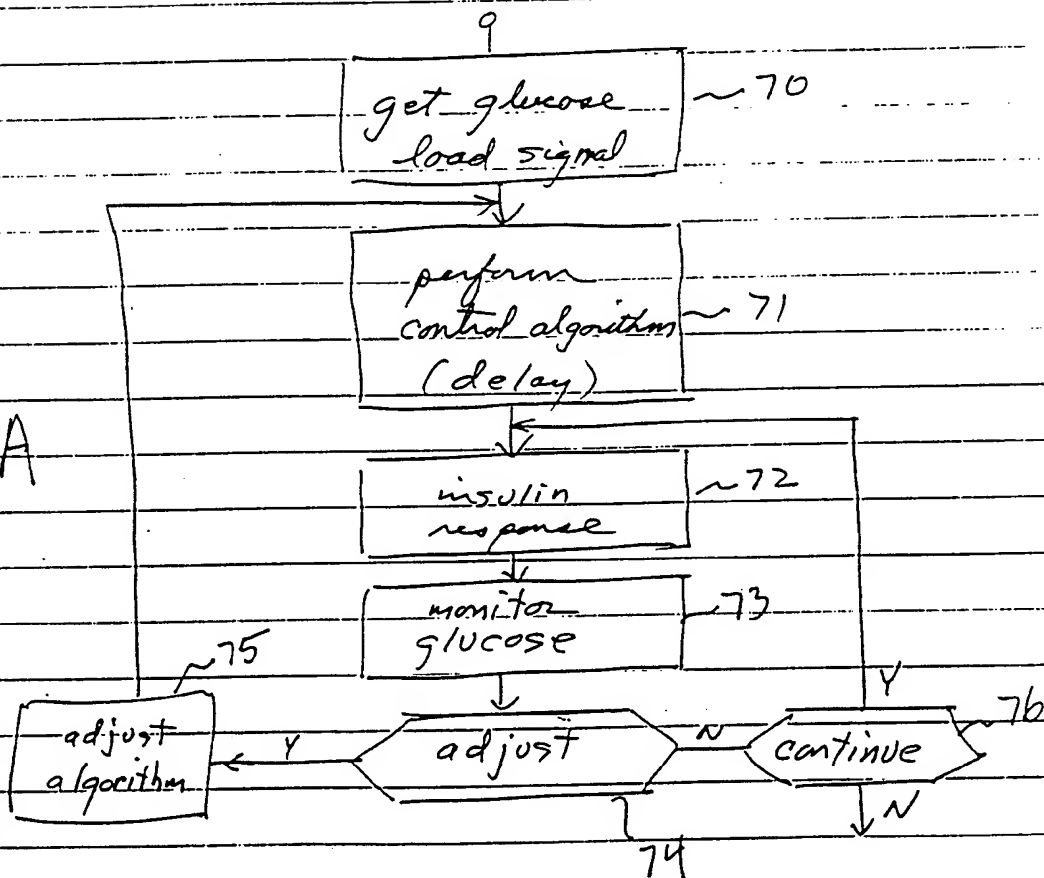 9
get glucose
load signal
70
perform
control algorithm
(delay)
71
A
insulin
response
72
monitor
glucose
73
75
adjust
algorithm
Y
adjust
N
continue
Y
76
N
74